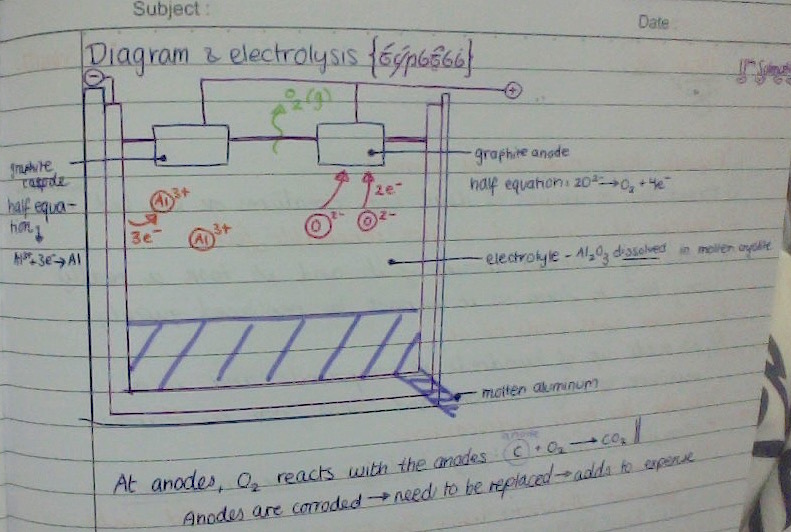 Subject :
Date
Diagram & electrolysis
O₂(g)
graphite
half equa-
tion,
Al³⁺+3e⁻→Al
Al 3+
3e⁻
Al 3+
O 2-
O 2-
2e⁻
graphite anode
half equation: 2O²⁻→O₂ + 4e⁻
electrolyte - Al₂O₃ dissolved in molten cryolite
molten aluminum
anode
At anodes, O₂ reacts with the anodes C + O₂ → CO₂
Anodes are corroded → need to be replaced → adds to expense